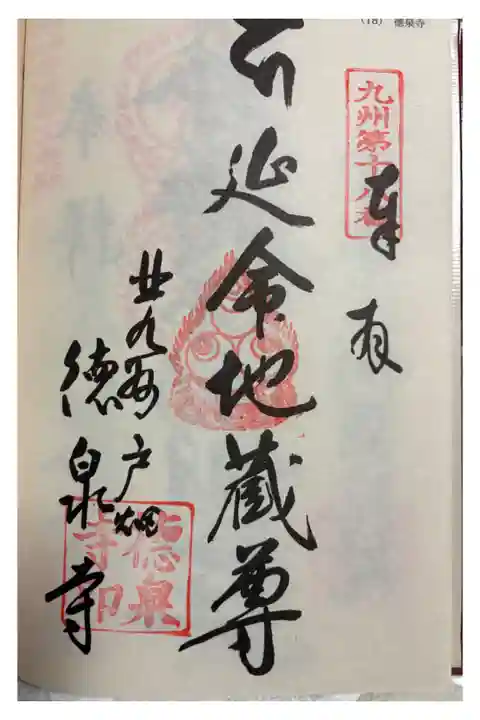 (18) 徳泉寺
九州第十八番
奉
延命地蔵尊
北九州戸畑
徳泉寺
徳泉
寺印